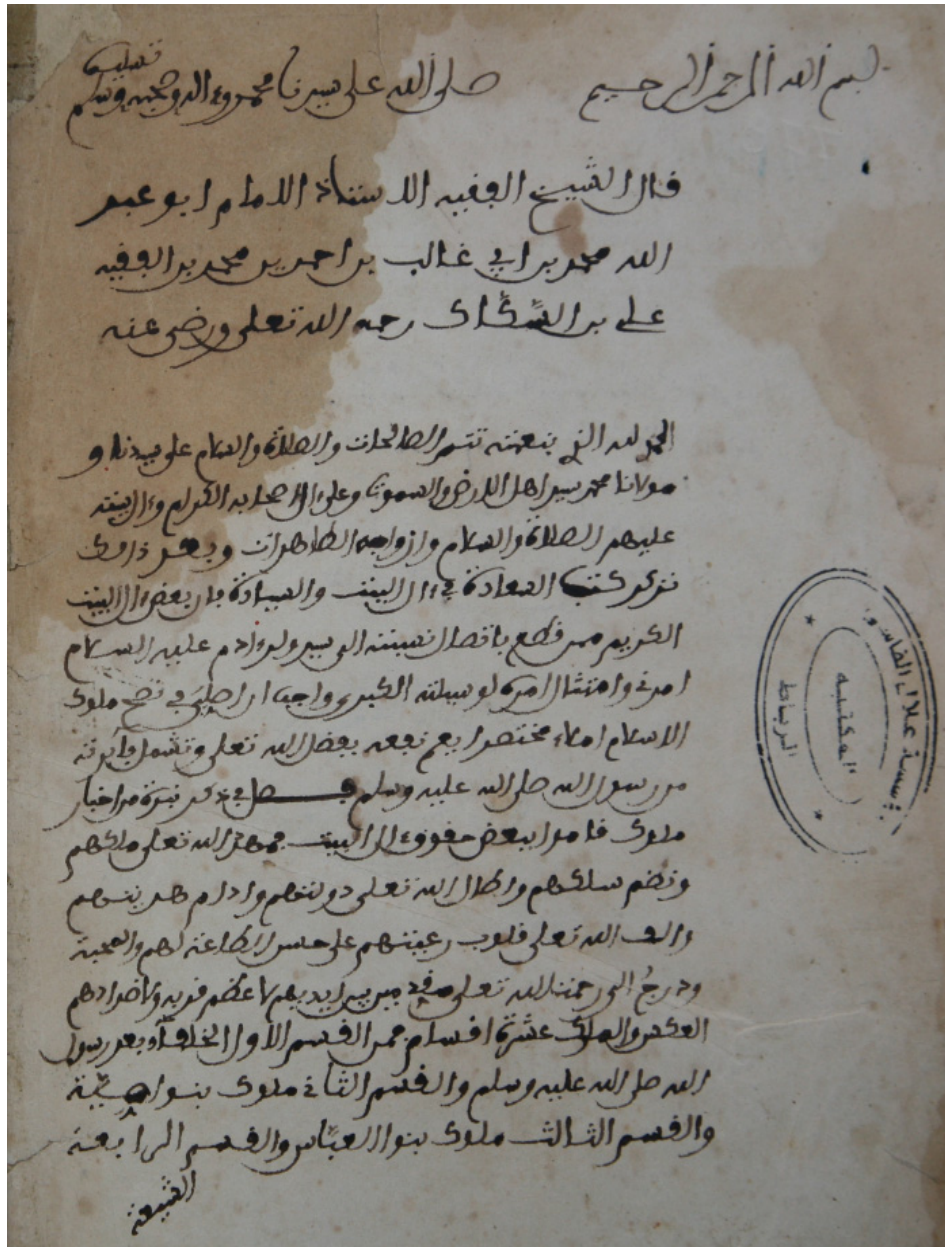 بسم الله الرحمن الرحيم صلى الله على سيدنا محمد وءاله وصحبه وسلم تسليما
قال الشيخ الفقيه الاستاذ الامام ابو عبد
الله محمد بن ابي غالب بن احمد بن محمد بن الفقيه
علي بن السكاك رحمه الله تعلى ورضي عنه
الحمد لله الذي بنعمته تتم الصالحات والصلاة والسلام على سيدنا و
مولانا محمد سيد اهل الارض والسموت وعلى اله اصحابه الكرام وءال بيته
عليهم الصلاة والسلام وازواجه الطاهرات وبعد
كتب السعادة في ءال البيت والسيادة بعض ءال البيت
الكريم ممن قطع باتصال نسبته الى سيد ولد ءادم عليه السلام
امرني وامتثال امره لوسيلته الكبرى واجب ان في نصح ملوك
الاسلام املاء مختصرا يعم نفعه بفضل الله تعلى وتشمل
من رسول الله صلى الله عليه وسلم فصل في ذكر نبذة من اخبار
ملوك قاموا ببعض حقوق ءال البيت مهد الله تعلى ملكهم
ونظم سلكهم واطال الله تعلى دولتهم وادام هديتهم
والف الله تعلى قلوب رعيتهم على حسن الطاعة لهم والمحبة
ودرج الى رحمة الله تعلى من بين ايديهم لاعظم قربه ولاضدادهم
العكس والملوك عشرة اقسام فمن القسم الاول الخلفاء بعد رسول
الله صلى الله عليه وسلم والقسم الثاني ملوك بنوا امية
والقسم الثالث ملوك بنوا العباس والقسم الرابعة
الشيعة
مؤسسة علال الفاسي
المكتبة
الرباط